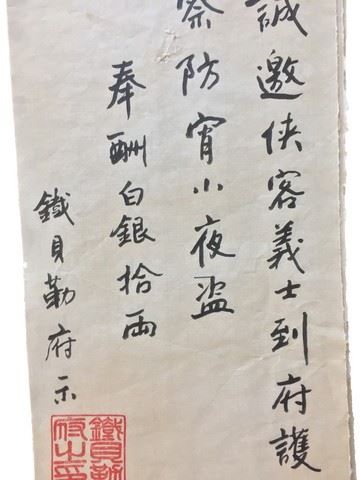 誠邀俠客義士到府護
察防宵小夜盜
奉酬白銀拾兩
鐵貝勒府示
鐵貝勒
府之印